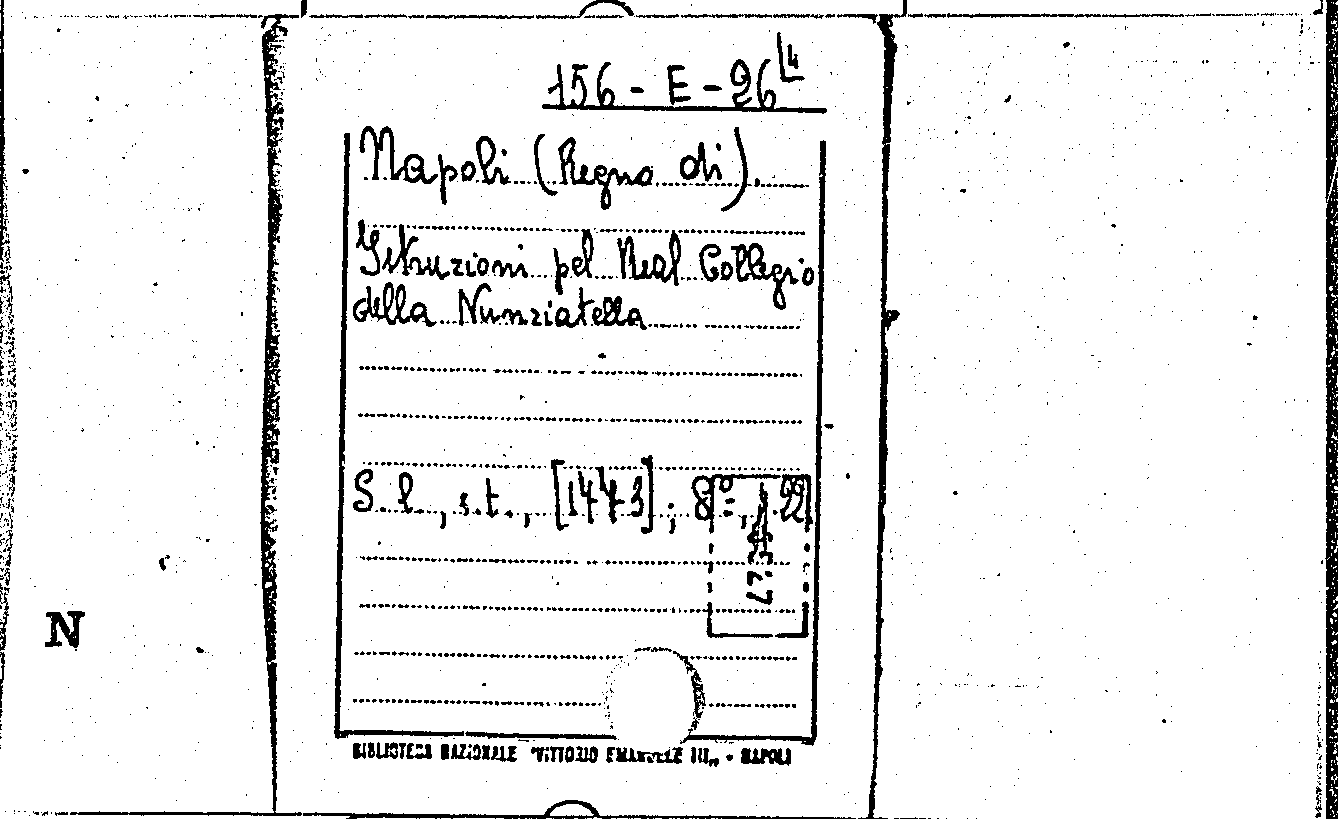 156 - E - 26 4
Napoli (Regno di).
Istruzioni pel Real Collegio
della Nunziatella
S.l., s.t., [1773]; 8º, p. 22
N
BIBLIOTECA NAZIONALE "VITTORIO EMANUELE III„ - NAPOLI